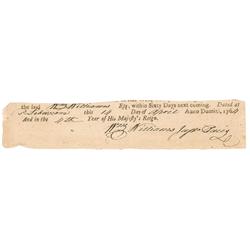 the said Wm Williams Esq; within Sixty Days next coming. Dated at
Lebanon this 19 Day of April Anno Domini, 1764
And in the 4th Year of His Majesty's Reign.
Wm Williams Jus Peace